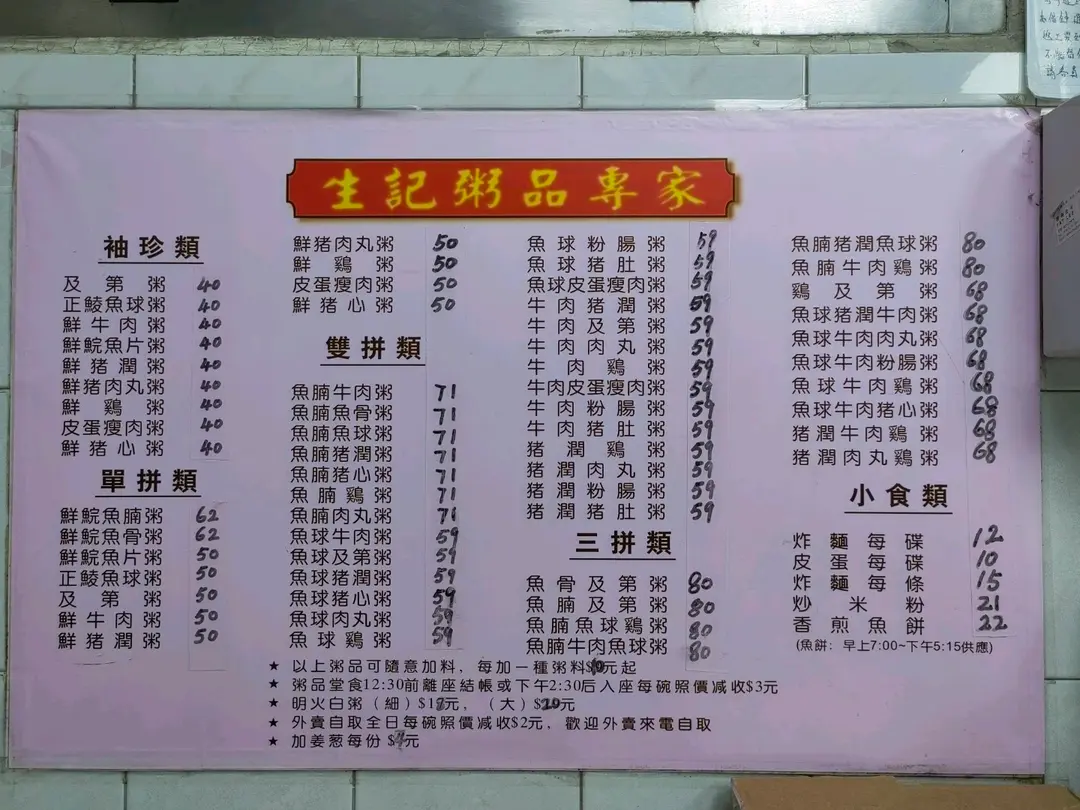 生記粥品專家
袖珍類
及第粥 40
正鯪魚球粥 40
鮮牛肉粥 40
鮮鯇魚片粥 40
鮮猪潤粥 40
鮮猪肉丸粥 40
鮮鷄粥 40
皮蛋瘦肉粥 40
鮮猪心粥 40
單拼類
鮮鯇魚腩粥 62
鮮鯇魚骨粥 62
鮮鯇魚片粥 50
正鯪魚球粥 50
及第粥 50
鮮牛肉粥 50
鮮猪潤粥 50
鮮猪肉丸粥 50
鮮鷄粥 50
皮蛋瘦肉粥 50
鮮猪心粥 50
雙拼類
魚腩牛肉粥 71
魚腩魚骨粥 71
魚腩魚球粥 71
魚腩猪潤粥 71
魚腩猪心粥 71
魚腩鷄粥 71
魚腩肉丸粥 71
魚球牛肉粥 59
魚球及第粥 59
魚球猪潤粥 59
魚球猪心粥 59
魚球肉丸粥 59
魚球鷄粥 59
魚球粉腸粥 59
魚球猪肚粥 59
魚球皮蛋瘦肉粥 59
牛肉猪潤粥 59
牛肉及第粥 59
牛肉肉丸粥 59
牛肉鷄粥 59
牛肉皮蛋瘦肉粥 59
牛肉粉腸粥 59
牛肉猪肚粥 59
猪潤鷄粥 59
猪潤肉丸粥 59
猪潤粉腸粥 59
猪潤猪肚粥 59
三拼類
魚骨及第粥 80
魚腩及第粥 80
魚腩魚球鷄粥 80
魚腩牛肉魚球粥 80
魚腩猪潤魚球粥 80
魚腩牛肉鷄粥 80
鷄及第粥 68
魚球猪潤牛肉粥 68
魚球牛肉肉丸粥 68
魚球牛肉粉腸粥 68
魚球牛肉鷄粥 68
魚球牛肉猪心粥 68
猪潤牛肉鷄粥 68
猪潤肉丸鷄粥 68
小食類
炸麵每碟 12
皮蛋每碟 10
炸麵每條 15
炒米粉 21
香煎魚餅 22
(魚餅：早上7:00~下午5:15供應)
★ 以上粥品可隨意加料，每加一種粥料$10元起
★ 粥品堂食12:30前離座結帳或下午2:30后入座每碗照價减收$3元
★ 明火白粥（細）$18元，（大）$20元
★ 外賣自取全日每碗照價减收$2元，歡迎外賣來電自取
★ 加姜葱每份 $元